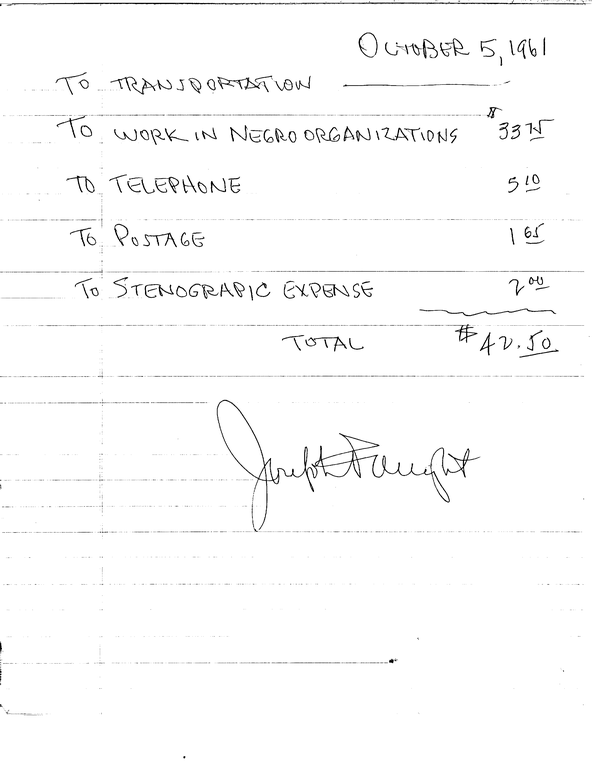 OCTOBER 5, 1961
TO TRANSPORTATION
TO WORK IN NEGRO ORGANIZATIONS $33 75
TO TELEPHONE 5 10
TO POSTAGE 1 65
TO STENOGRAPIC EXPENSE 2 00
TOTAL $42.50
Joseph